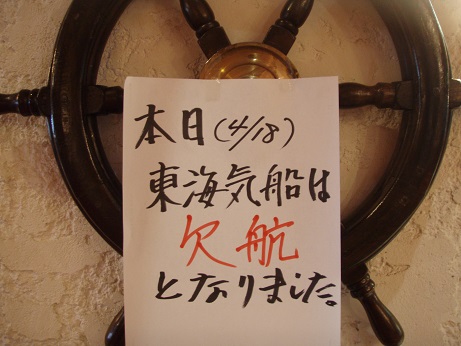 本日(4/18)
東海気船は
欠航
となりました。